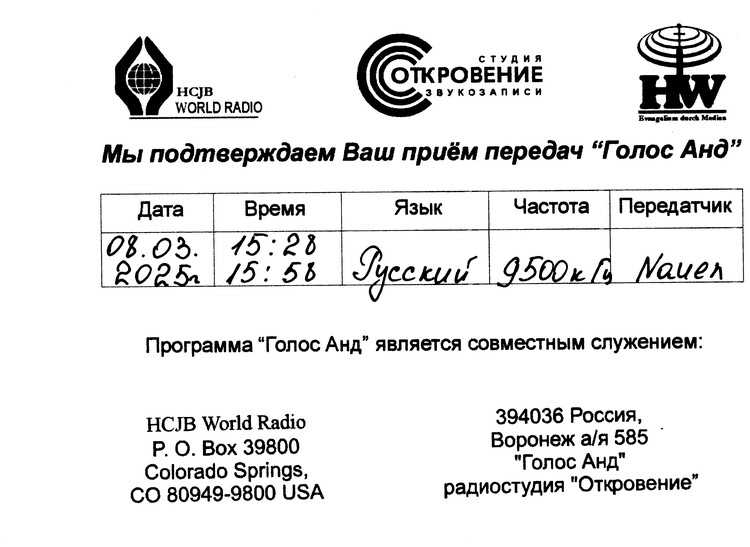 HCJB
WORLD RADIO
СТУДИЯ
ОТКРОВЕНИЕ
ЗВУКОЗАПИСИ
HW
Evangelism durch Medien
Мы подтверждаем Ваш приём передач “Голос Анд”
Дата Время Язык Частота Передатчик
08.03. 15:28
2025г 15:58 Русский 9500кГц Nauen
Программа “Голос Анд” является совместным служением:
HCJB World Radio
P. O. Box 39800
Colorado Springs,
CO 80949-9800 USA
394036 Россия,
Воронеж а/я 585
"Голос Анд"
радиостудия "Откровение”